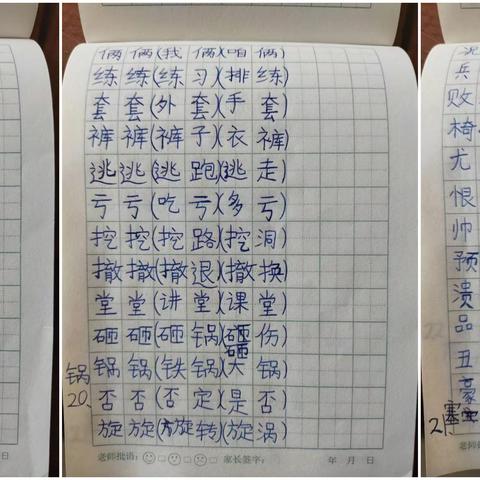 俩俩(我俩)(咱俩)
练练(练习)(排练)
套套(外套)(手套)
裤裤(裤子)(衣裤)
逃逃(逃跑)(逃走)
亏亏(吃亏)(多亏)
挖挖(挖路)(挖洞)
撤撤(撤退)(撤换)
堂堂(讲堂)(课堂)
砸砸(砸锅)(砸伤)
砸
锅 锅锅(铁锅)(大锅)
20、否否(否定)(是否)
旋旋(旋转)(旋涡)
老师批语: 家长签字: 年 月 日
兵
败
椅
尤
恨
帅
预
溃
品
丑
豪
21
老师批
日